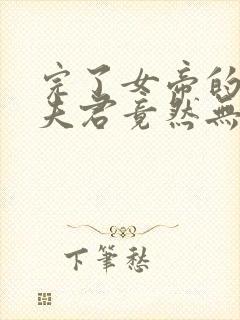 完了女帝的
夫君竟然無
下筆愁